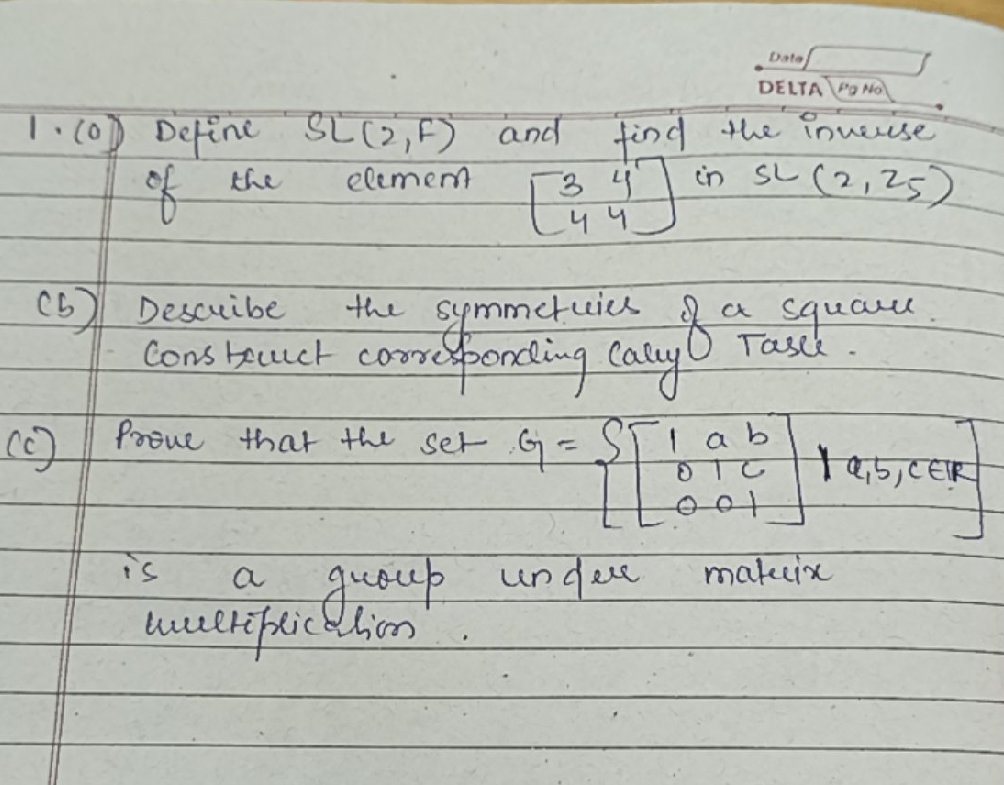 Date
DELTA Pg No
1. (a) Define SL(2,F) and find the inverse
of the element [3 4 in SL(2,Z5)
4 4]
(b) Describe the symmetries of a square.
Construct corresponding Caley Table.
(c) Prove that the set G = {[1 a b
0 1 c | a,b,c ∈ R}
0 0 1]
is a group under matrix
multiplication.